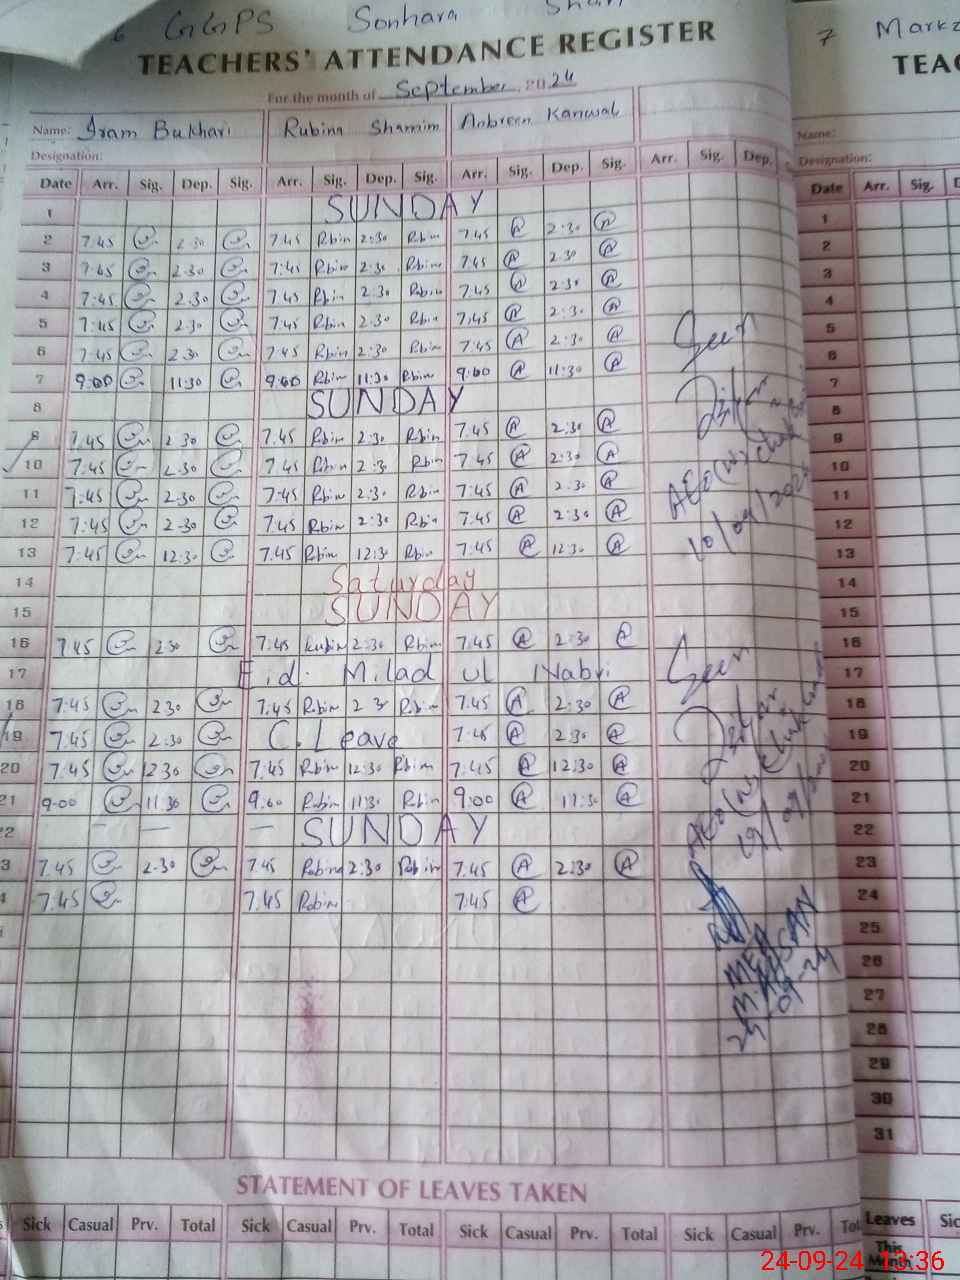 6 GGPS Sonhara Shar
TEACHERS' ATTENDANCE REGISTER
For the month of September 2024
Name: Iram Bukhari Rubina Shamim Anbreen Kanwal
Designation:
Date Arr. Sig. Dep. Sig. Arr. Sig. Dep. Sig. Arr. Sig. Dep. Sig. Arr. Sig. Dep.
1 SUNDAY
2 7:45 2:30 7:45 Rbin 2:30 Rbin 7:45 A 2:30 A
3 7:45 2:30 7:45 Rbin 2:30 Rbin 7:45 A 2:30 A
4 7:45 2:30 7:45 Rbin 2:30 Rubin 7:45 A 2:30 A
5 7:45 2:30 7:45 Rbin 2:30 Rbin 7:45 A 2:30 A
6 7:45 2:30 7:45 Rbin 2:30 Rbin 7:45 A 2:30 A
7 9:00 11:30 9:00 Rbin 11:30 Rbin 9:00 A 11:30 A
8 SUNDAY
9 7:45 2:30 7:45 Rbin 2:30 Rbin 7:45 A 2:30 A
10 7:45 2:30 7:45 Rbin 2:3 Rbin 7:45 A 2:30 A
11 7:45 2:30 7:45 Rbin 2:30 Rbin 7:45 A 2:30 A
12 7:45 2:30 7:45 Rbin 2:30 Rbin 7:45 A 2:30 A
13 7:45 12:30 7:45 Rbin 12:30 Rbin 7:45 A 12:30 A
14 Saturday
15 SUNDAY
16 7:45 2:30 7:45 Rubin 2:30 Rbin 7:45 A 2:30 A
17 Eid. Milad ul Nabvi
18 7:45 2:30 7:45 Rubin 2:3 Rubin 7:45 A 2:30 A
19 7:45 2:30 C. Leave 7:45 A 2:30 A
20 7:45 12:30 7:45 Rbin 12:30 Rbin 7:45 A 12:30 A
21 9:00 11:30 9:00 Rubin 11:30 Rbin 9:00 A 11:30 A
22 SUNDAY
3 7:45 2:30 7:45 Rubina 2:30 Rubin 7:45 A 2:30 A
4 7:45 7:45 Rubin 7:45 A
Seen
AEO(W)
10/09/2024
Seen
AEO(W)
19/09/2024
MEA
M. AHSAN
24-09-24
STATEMENT OF LEAVES TAKEN
Sick Casual Prv. Total Sick Casual Prv. Total Sick Casual Prv. Total Sick Casual Prv. Tot
7 Markz
TEAC
Name:
Designation:
Date Arr. Sig. D
1
2
3
4
5
6
7
8
9
10
11
12
13
14
15
16
17
18
19
20
21
22
23
24
25
26
27
28
29
30
31
Leaves Sic
This Month
24-09-24 13:36